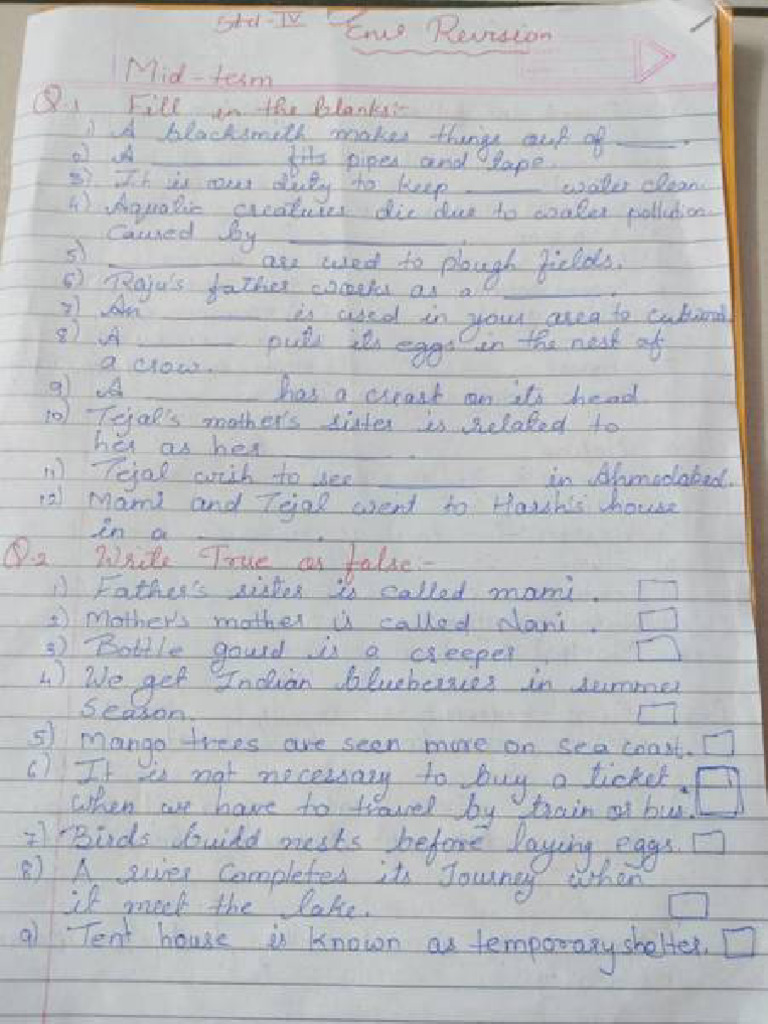 Std-IV Envs Revision
Mid-term
Q.1 Fill in the blanks:-
1) A blacksmith makes things out of ____.
2) A ________ fits pipes and tape.
3) It is our duty to keep ______ water clean.
4) Aquatic creatures die due to water pollution
caused by ____________.
5) ____________ are used to plough fields.
6) Raju's father works as a ________.
7) An __________ is used in your area to
8) A ________ puts its eggs in the nest of
a crow.
9) A __________ has a creast on its head.
10) Tejal's mother's sister is related to
her as her __________.
11) Tejal wish to see __________ in Ahmedabad.
12) Mami and Tejal went to Harsh's house
in a __________.
Q.2 Write True or false:-
1) Father's sister is called mami.
2) Mother's mother is called Nani.
3) Bottle gourd is a creeper.
4) We get Indian blueberries in summer
season.
5) Mango trees are seen more on sea coast.
6) It is not necessary to buy a ticket
when we have to travel by train or bus.
7) Birds build nests before laying eggs.
8) A river completes its Journey when
it meet the lake.
9) Tent house is known as temporary shelter.